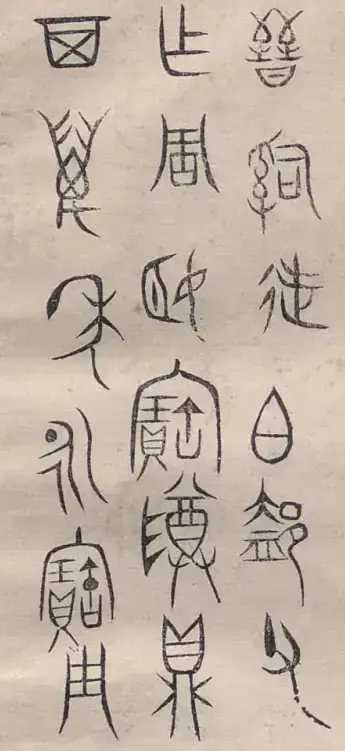 晉𤔲徒白郤父
乍周姬寶尊鼎
其萬年永寶用